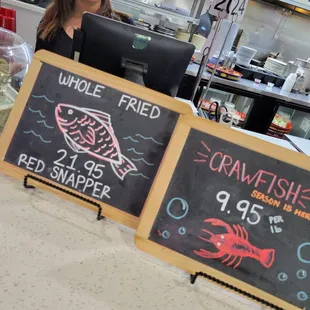 WHOLE FRIED
21.95
RED SNAPPER
CRAWFISH
SEASON IS
9.95 PER
lb